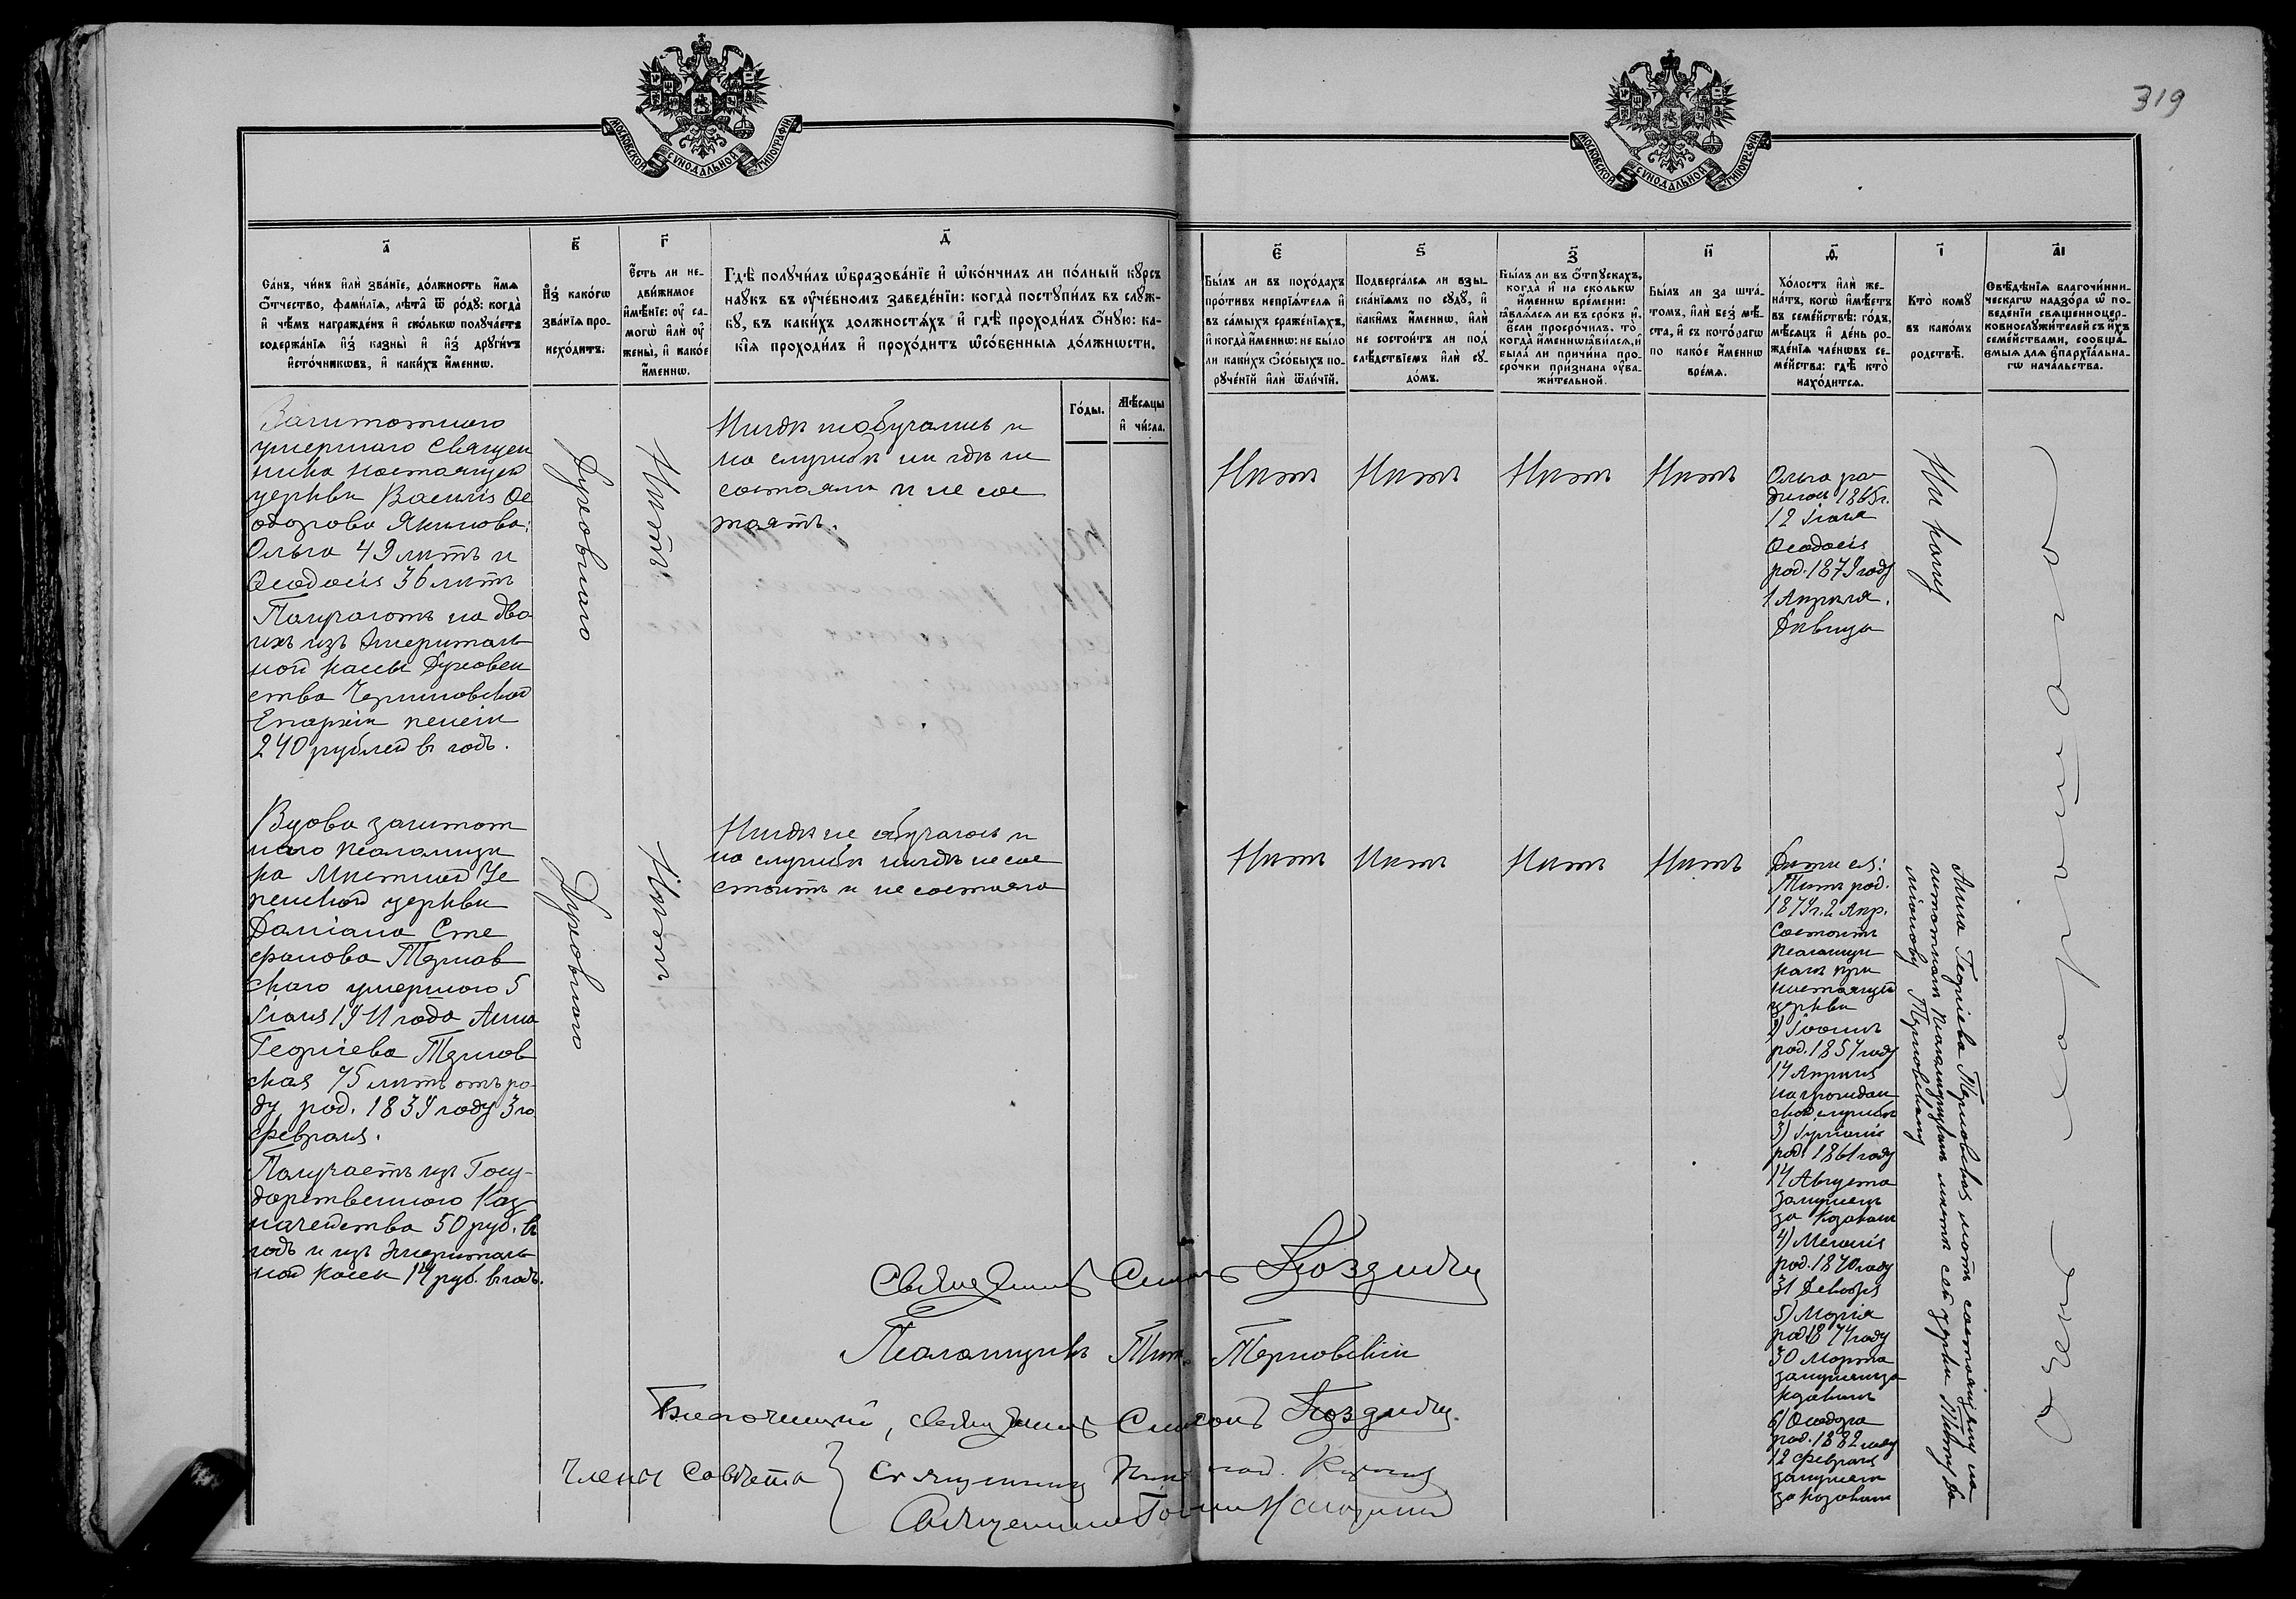 319
МОСКОВСКОЙ СУНОДАЛЬНОЙ ТИПОГРАФІИ
МОСКОВСКОЙ СУНОДАЛЬНОЙ ТИПОГРАФІИ
а҃
Са́нъ, чи́нъ и҆лѝ зва́нїе, до́лжность и҆́мѧ
ѻ҆́тчество, фами́лїѧ, лѣ́та ѿ ро́дꙋ: когда̀
и҆ чѣ́мъ награжде́нъ и҆ ско́лькѡ получа́етъ
содержа́нїѧ и҆з̾ казны̀ и҆ и҆з̾ други́хъ
и҆сто́чниковъ, и҆ каки́хъ и҆́меннѡ.
в҃
И҆з̾ како́гѡ
зва́нїѧ про-
исхо́дитъ.
г҃
Є҆́сть ли не-
дви́жимое
и҆мѣ́нїе: ᲂу҆ са-
могѡ̀ и҆лѝ ᲂу҆
жены̀, и҆ како́е
и҆́меннѡ.
д҃
Гдѣ̀ получи́лъ ѡ҆бразова́нїе и҆ ѡ҆ко́нчилъ ли по́лный кꙋ́рсъ
наꙋ́къ въ ᲂу҆че́бномъ заведе́нїи: когда̀ постꙋпи́лъ въ слꙋ́ж-
бꙋ, въ каки́хъ должностѧ́хъ и҆ гдѣ̀ проходи́лъ ѻ҆́нꙋю: ка-
кі̑ѧ проходи́лъ и҆ прохо́дитъ ѡ҆со́бенныѧ до́лжнѡсти.
Го́ды.
Мѣ́сѧцы
и҆ чи́сла.
є҃
Бы́лъ ли въ похо́дахъ
про́тивъ непрїѧ́телѧ и҆
въ са́мыхъ сраже́нїѧхъ,
и҆ когда̀ и҆́меннѡ: не бы́ло
ли каки́хъ ѻ҆со́быхъ по-
рꙋче́нїй и҆лѝ ѿли́чїй.
ѕ҃
Подверга́лсѧ ли взы-
ска́нїѧмъ по сꙋдꙋ̀, и҆
каки́мъ и҆́меннѡ, и҆лѝ
не состои́тъ ли под
слѣ́дствїемъ и҆лѝ сꙋ-
до́мъ.
з҃
Бы́лъ ли въ ѻ҆́тпꙋскахъ,
когда̀ и҆ на ско́лькѡ
и҆́меннѡ вре́мени:
ꙗ҆влѧ́лсѧ ли въ сро́къ и҆,
є҆́сли просро́чилъ, то̀
когда̀ и҆́меннѡ ꙗ҆ви́лсѧ, и҆
была̀ ли причи́на про-
сро́чки при́знана ᲂу҆ва-
жи́тельной.
и҃
Бы́лъ ли за шта́-
томъ, и҆лѝ без̾ мѣ́-
ста, и҆ съ кото́рагѡ
по како́е и҆́меннѡ
вре́мѧ.
ѳ҃
Хо́лостъ и҆лѝ же-
на́тъ, когѡ̀ и҆мѣ́етъ
въ семе́йствѣ: го́дъ,
мѣ́сѧцъ и҆ де́нь ро-
жде́нїѧ чле́нѡвъ се-
ме́йства: гдѣ̀ кто̀
нахо́дитсѧ.
і҃
Кто̀ комꙋ̀
въ како́мъ
родствѣ̀.
а҃і
Свѣ́дѣнїѧ благочи́нни-
ческагѡ надзо́ра ѡ҆ по-
веде́нїи свѧщенноцер-
ковнослꙋжи́телей съ и҆́хъ
семе́йствами, сообща́-
ємыѧ для є҆парха́льна-
гѡ нача́льства.
Заштатнаго
умершаго Священ
ника настоящей
церкви Василія Ѳе
одорова Якимова:
Ольга 49 лѣтъ и
Ѳеодосія 36 лѣтъ
Получаютъ на дво
ихъ изъ Эмериталь
ной кассы Духовен
ства Черниговской
Епархіи пенсіи
240 рублей въ годъ.
Духовнаго
Нигдѣ не обучались и
на службѣ ни гдѣ не
состояли и не сос
тоятъ.
Нѣтъ
Нѣтъ
Нѣтъ
Нѣтъ
Ольга ро
дилась 1865 г.
Ѳеодосія
род. 1879 году
1 Апрѣля.
Дѣвица
Ни кому
Очень хорошаго
Вдова заштат
наго псаломщи
ка Мнетной Ус
пенской церкви
Даміана Сте
фанова Тернов
скаго умершаго 5
1911 года Анна
Георгіева Тернов
ская 75 лѣтъ отъ ро
ду род. 1839 году 3 го
февраля.
Получаетъ изъ Госу-
дарственнаго Каз
начейства 50 руб. въ
годъ и изъ Эмериталь
ной кассы 14 руб. въ годъ.
Духовнаго
Нигдѣ не обучалась и
на службѣ нигдѣ не сос
стоитъ и не состояла
Нѣтъ
Нѣтъ
Нѣтъ
Нѣтъ
Дѣти ея:
Титъ род.
1879 г. 2 Апр.
Состоитъ
псаломщи
комъ при
настоящей
церкви
2) Іоаннъ
род. 1857 году
17 Апрѣля
на граждан
ской службѣ
3)
род. 1861 году
14 Августа
замужемъ
за козакомъ
4) Меланія
род. 1870 году
31 Декабря
5) Марія
род. 1874 году
30 Марта
замужемъ за
козакомъ
6) Ѳеодора
род. 1882 году
12 февраля
замужемъ
за козакомъ
Анна Георгіева Терновская мать состоящему на
штатномъ псаломщицкомъ мѣстѣ сей церкви Титу Да
міанову Терновскому
Священникъ Симеонъ
Псаломщикъ Титъ Терновскій
Благочинный, священникъ Симеонъ
Члены Совѣта } Священникъ
Священникъ